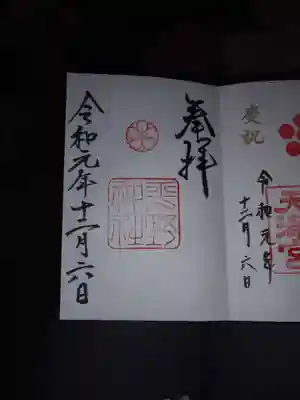 奉拝
神社
令和元年十二月六日
慶祝
天満宮
令和元年
十二月六日